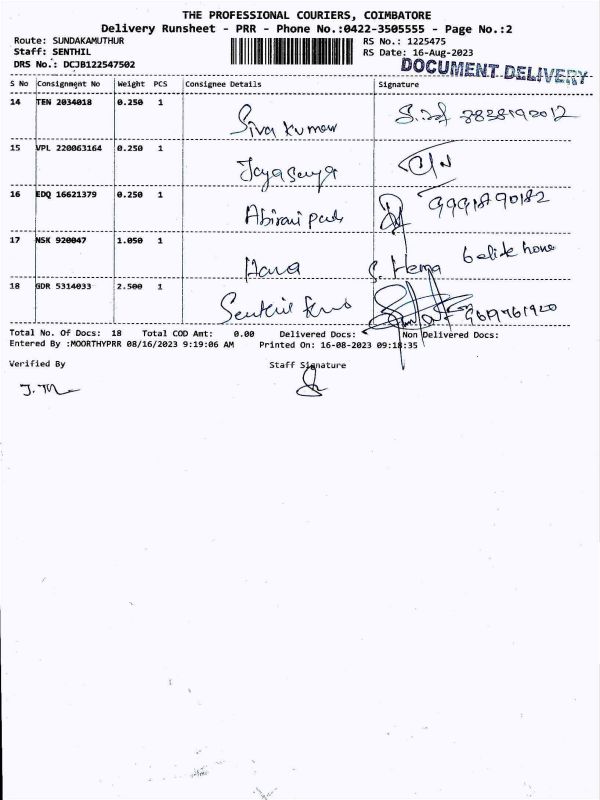 THE PROFESSIONAL COURIERS, COIMBATORE
Delivery Runsheet - PRR - Phone No.:0422-3505555 - Page No.:2
Route: SUNDAKAMUTHUR RS No.: 1225475
Staff: SENTHIL RS Date: 16-Aug-2023
DRS No.: DCJB122547502 DOCUMENT DELIVERY
S No Consignment No Weight PCS Consignee Details Signature
14 TEN 2034018 0.250 1
Siva kumar
15 VPL 220063164 0.250 1
Jayasurya
16 EDQ 16621379 0.250 1
Abirani
17 NSK 920047 1.050 1
Hana S. Hema
18 GDR 5314033 2.500 1
Senthil
Total No. Of Docs: 18 Total COD Amt: 0.00 Delivered Docs: Non Delivered Docs:
Entered By :MOORTHYPRR 08/16/2023 9:19:06 AM Printed On: 16-08-2023 09:18:35
Verified By Staff Signature